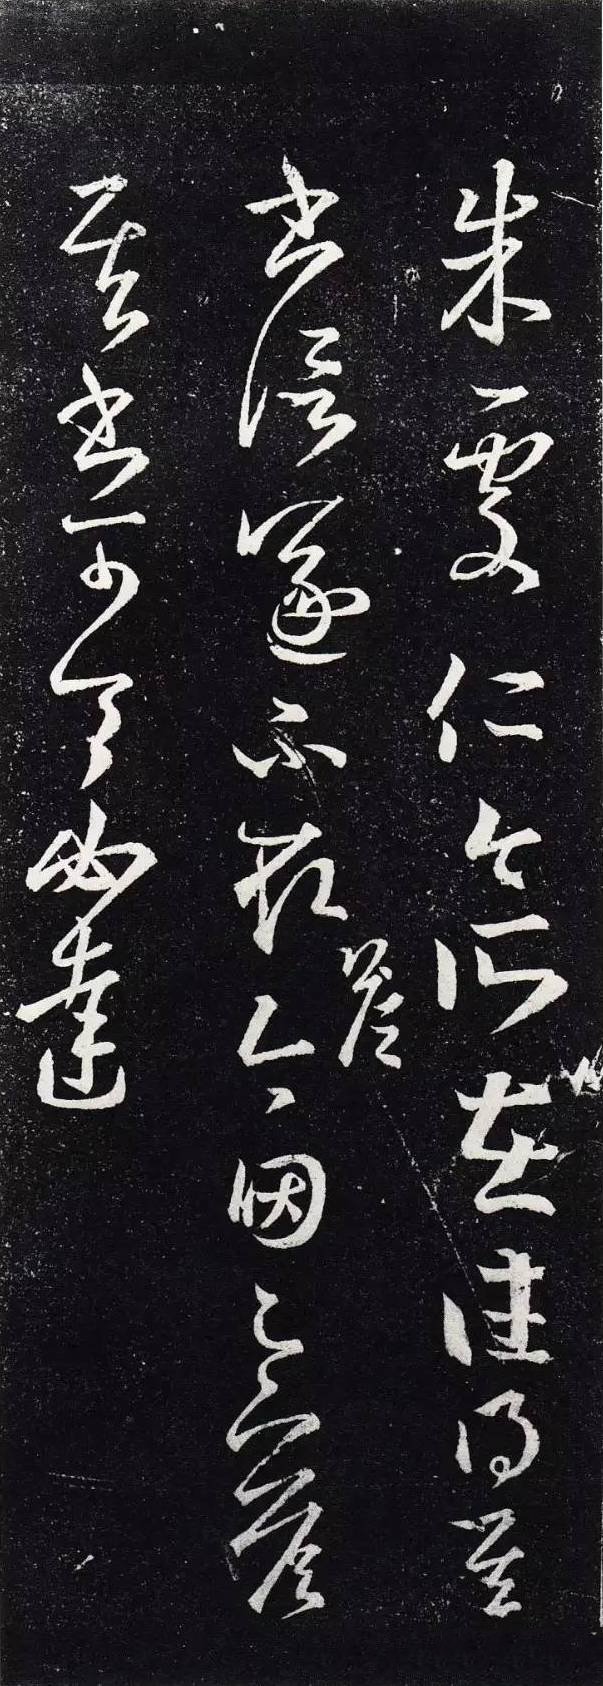 朱處仁今所在往得其
書信遂不取答今因足下答
其書可令必達